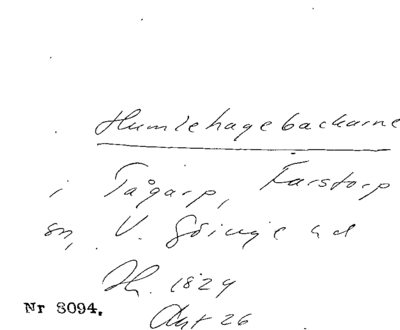 Humlehagebackarne
i Tågarp, Farstorp
sn, V. Göinge hd
Sk. 1829
Akt 26
Nr 3094.